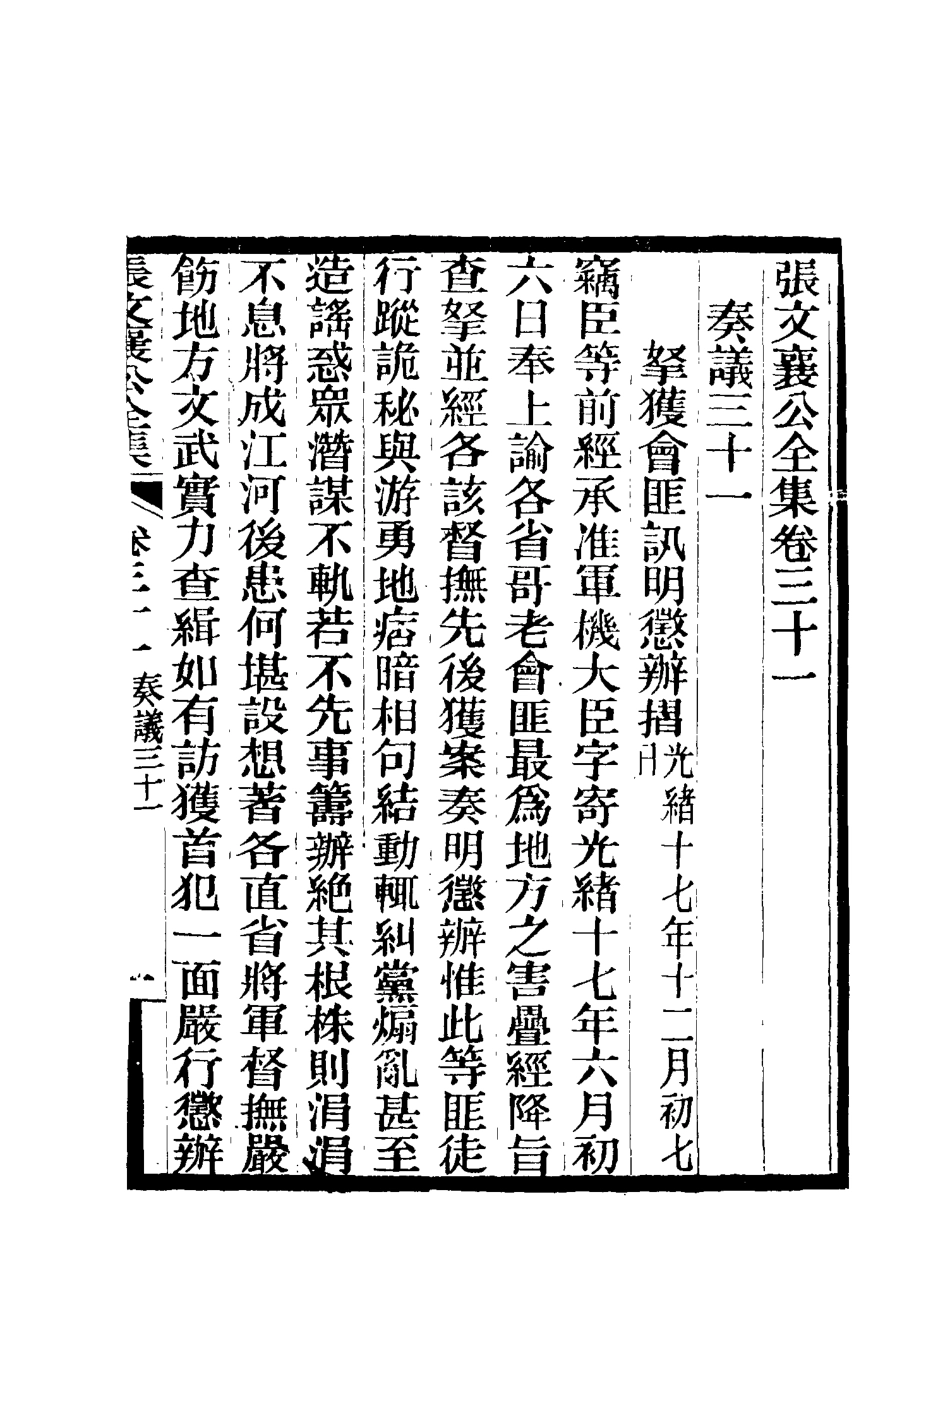 張文襄公全集卷三十一
奏議三十一
拏獲會匪訊明懲辦摺光緒十七年十二月初七日
竊臣等前經承准軍機大臣字寄光緒十七年六月初
六日奉上諭各省哥老會匪最爲地方之害疊經降旨
查拏並經各該督撫先後獲案奏明懲辦惟此等匪徒
行蹤詭秘與游勇地痞暗相句結動輒糾黨煽亂甚至
造謠惑眾潛謀不軌若不先事籌辦絕其根株則涓涓
不息將成江河後患何堪設想著各直省將軍督撫嚴
飭地方文武實力查緝如有訪獲首犯一面嚴行懲辦
張文襄公全集 卷三十一 奏議三十一 一